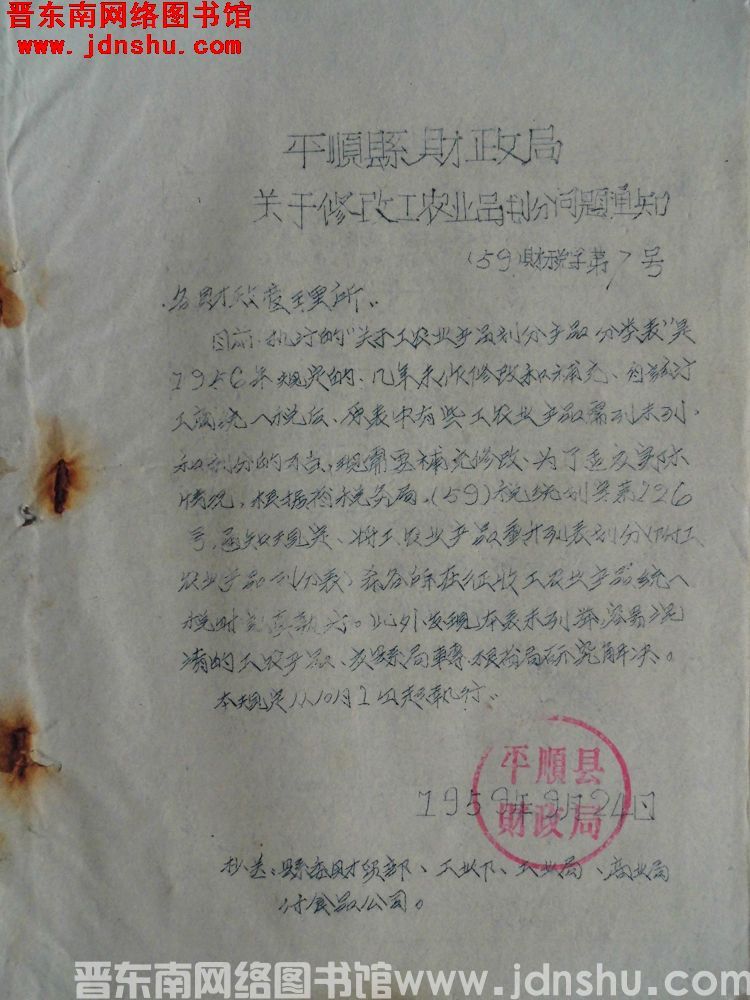 晋东南网络图书馆
www.jdnshu.com
平順縣財政局
关于修改工农业品划分问题通知
(59)财税字第7号
各财政管理所.
目前执行的“关于工农业产品划分产品分类表”是
1956年规定的.几年未作修改和补充、自试行
工商统一税后、原表中有些工农业产品需列未列、
和划分的不宜,现需要补充修改、为了适应实际
情况,根据省税务局、(59)税统划字第226
号,通知规定、将工农业产品重新列表划分(附工
农业产品划分表)希各所在征收工农业产品统一
税时为事执行。此外发现本表未列举,容易混
淆的工农产品、及县局轉报省局研究解决。
本规定从10月1日起執行。
平順县
財政局
1959年9月24日
抄送:縣委财贸部、工业下、工业局、商业局
付食品公司。
晋东南网络图书馆www.jdnshu.com